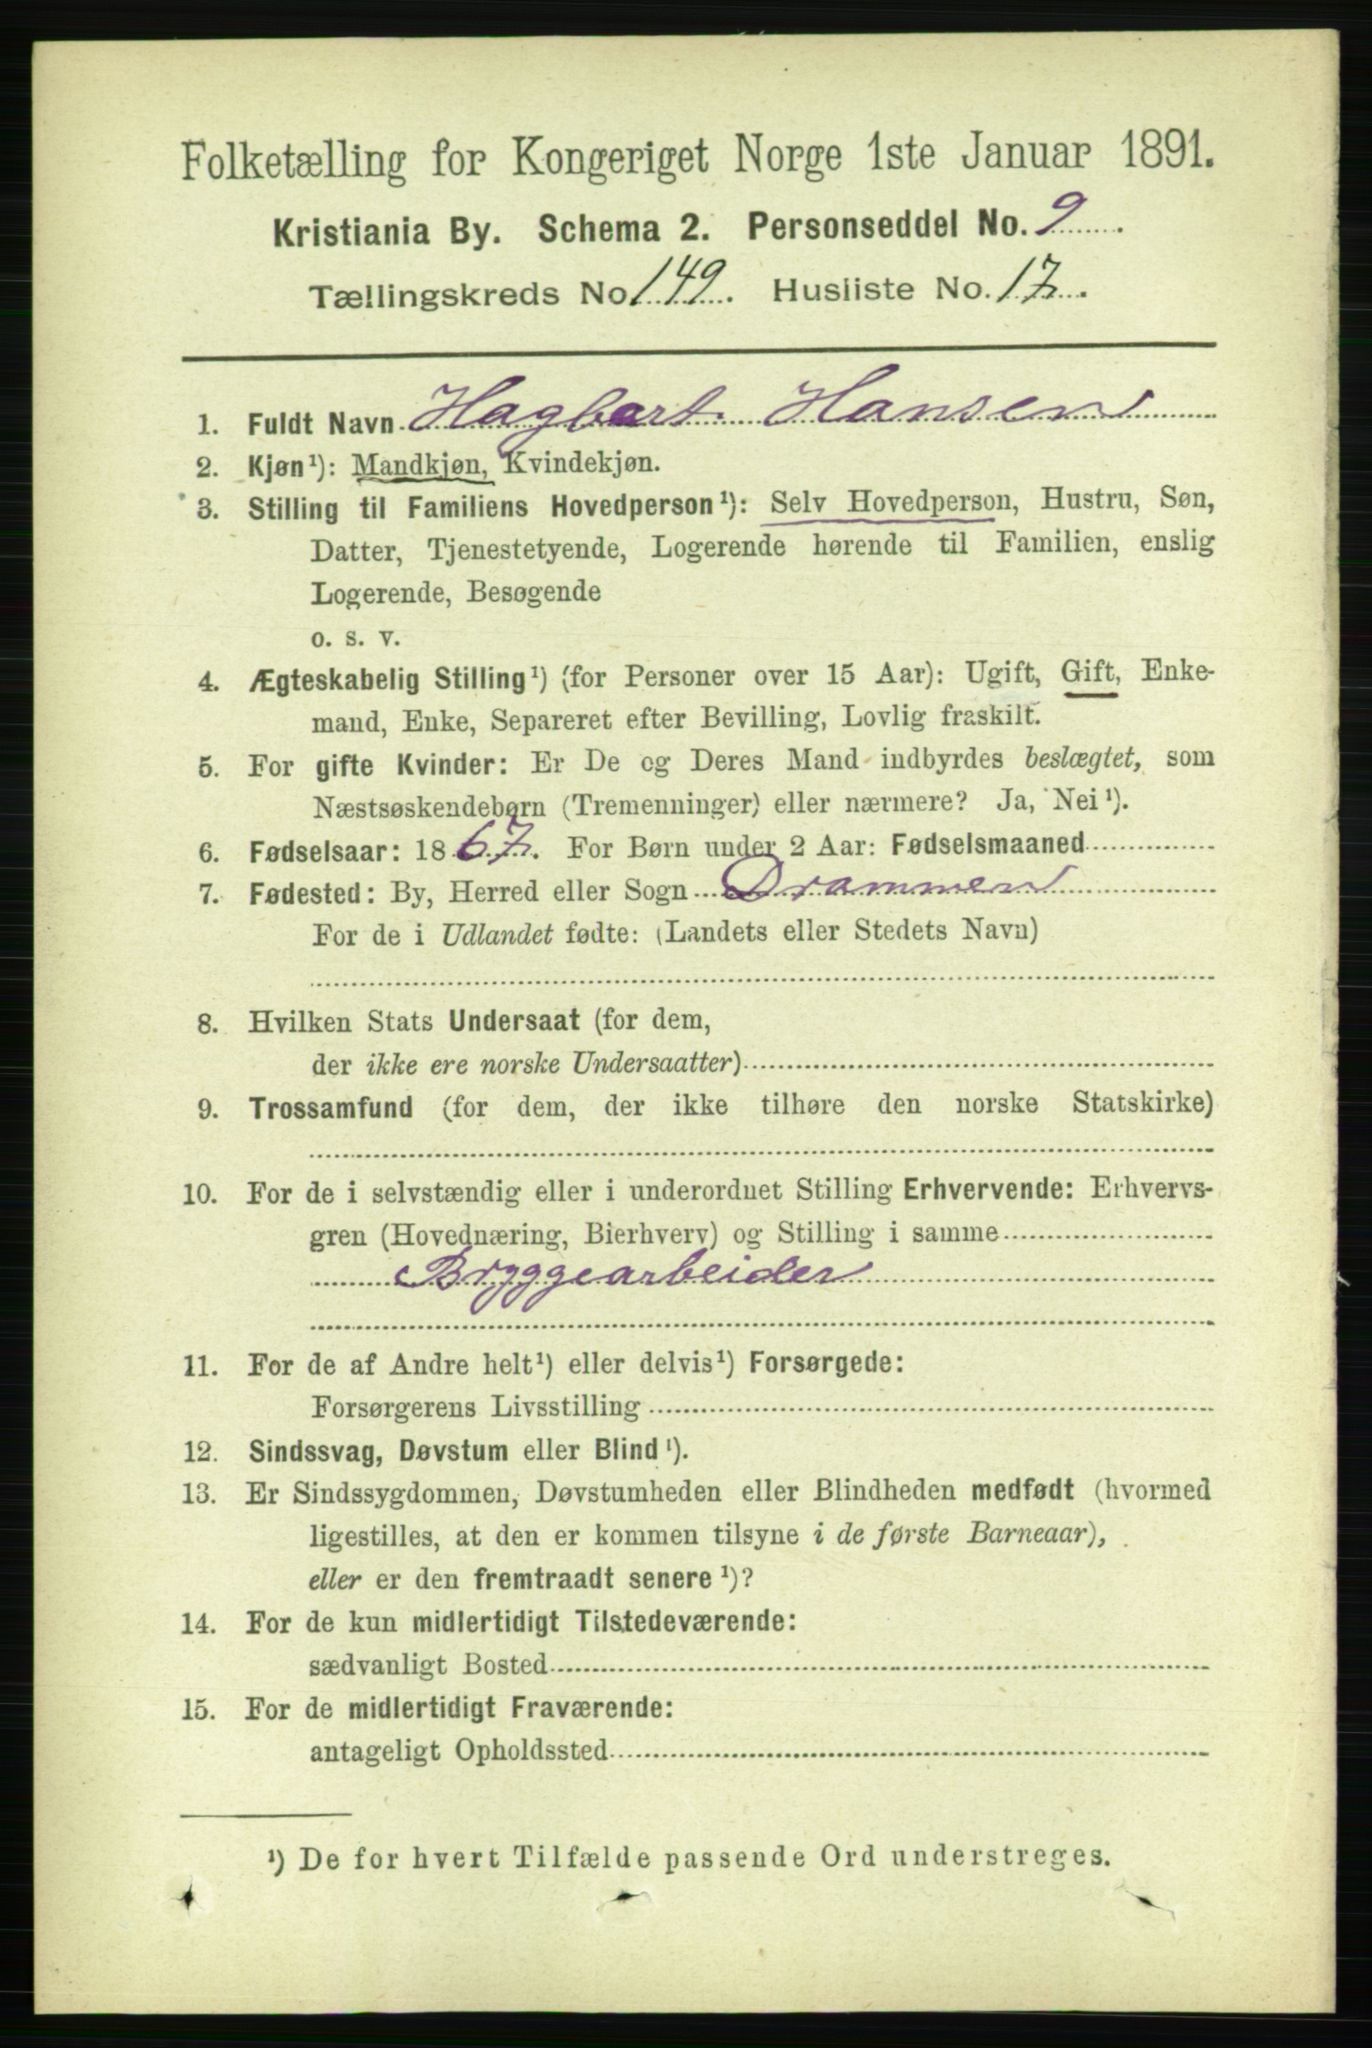 Folketælling for Kongeriget Norge 1ste Januar 1891.
Kristiania By. Schema 2. Personseddel No. 9
Tællingskreds No. 149. Husliste No. 17.
1. Fuldt Navn Hagbart Hansen
2. Kjøn¹): Mandkjøn, Kvindekjøn.
3. Stilling til Familiens Hovedperson¹): Selv Hovedperson, Hustru, Søn,
Datter, Tjenestetyende, Logerende hørende til Familien, enslig
Logerende, Besøgende
o. s. v.
4. Ægteskabelig Stilling¹) (for Personer over 15 Aar): Ugift, Gift, Enke-
mand, Enke, Separeret efter Bevilling, Lovlig fraskilt.
5. For gifte Kvinder: Er De og Deres Mand indbyrdes beslægtet, som
Næstsøskendebørn (Tremenninger) eller nærmere? Ja, Nei¹).
6. Fødselsaar: 1867. For Børn under 2 Aar: Fødselsmaaned
7. Fødested: By, Herred eller Sogn Drammen
For de i Udlandet fødte: (Landets eller Stedets Navn)
8. Hvilken Stats Undersaat (for dem,
der ikke ere norske Undersaatter)
9. Trossamfund (for dem, der ikke tilhøre den norske Statskirke)
10. For de i selvstændig eller i underordnet Stilling Erhvervende: Erhvervs-
gren (Hovednæring, Bierhverv) og Stilling i samme
Bryggearbeider
11. For de af Andre helt¹) eller delvis¹) Forsørgede:
Forsørgerens Livsstilling
12. Sindssvag, Døvstum eller Blind¹).
13. Er Sindssygdommen, Døvstumheden eller Blindheden medfødt (hvormed
ligestilles, at den er kommen tilsyne i de første Barneaar),
eller er den fremtraadt senere¹)?
14. For de kun midlertidigt Tilstedeværende:
sædvanligt Bosted
15. For de midlertidigt Fraværende:
antageligt Opholdssted
¹) De for hvert Tilfælde passende Ord understreges.